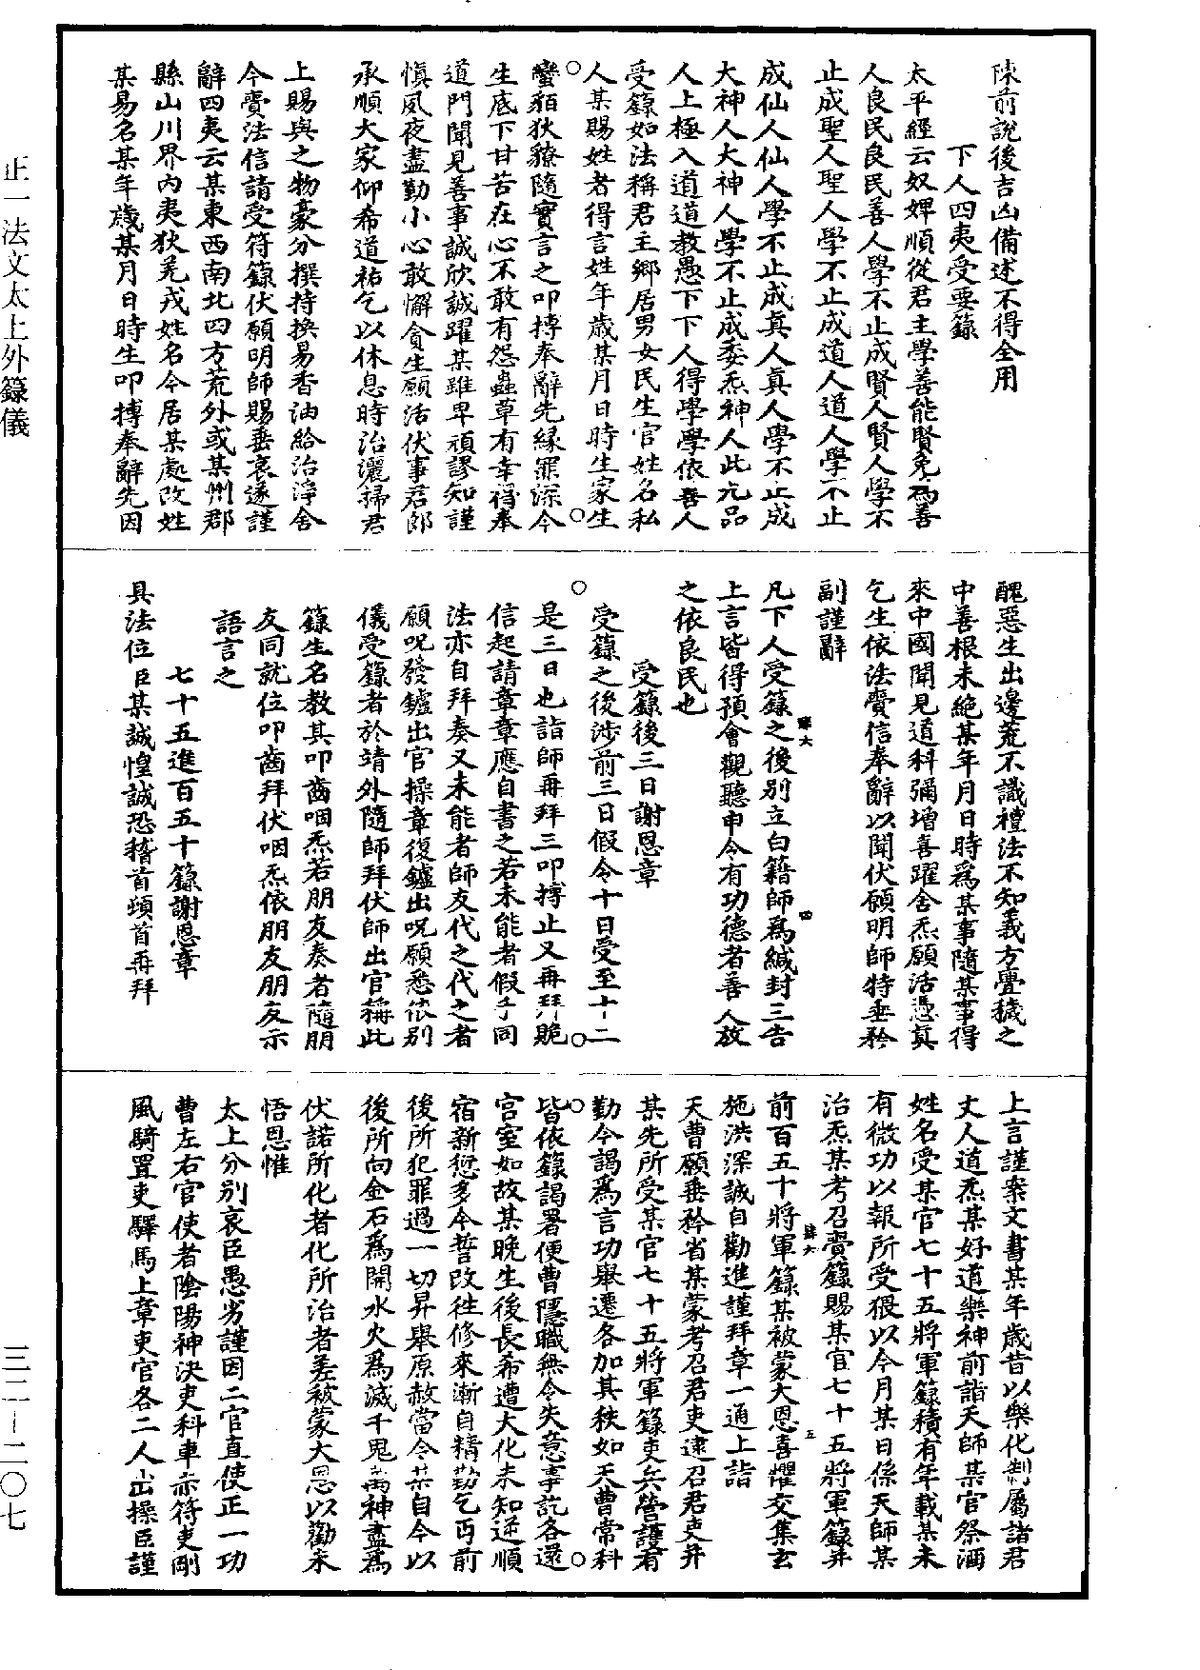 陳前說後吉凶備述不得全用
下人四夷受要籙
太平經云奴婢順從君主學善能賢免為善
人良民良民善人學不止成賢人賢人學不
止成聖人聖人學不止成道人道人學不止
成仙人仙人學不止成真人真人學不止成
大神人大神人學不止成委炁神人此九品
人上極入道道教愚下下人得學學依善人
受籙如法稱君主鄉居男女民生官姓名私
人某賜姓者得言姓年歲某月日時生家生
蠻貊狄獠隨實言之叩搏奉辭先緣罪深今
生底下甘苦在心不敢有怨蟲草有幸得奉
道門聞見善事誠欣誠躍某雖卑頑謬知謹
慎夙夜盡勤小心敢懈貪生願活伏事君郎
承順大家仰希道祐乞以休息時治灑掃君
上賜與之物豪分撰持換易香油給治淨舍
今賫法信請受符籙伏願明師賜垂哀遂謹
辭四夷云某東西南北四方荒外或某州郡
縣山川界內夷狄羌戎姓名今居某處改姓
某易名某年歲某月日時生叩搏奉辭先因
醜惡生出邊荒不識禮法不知義方舋穢之
中善根未絕某年月日時為某事隨某事得
來中國聞見道科彌增喜躍含炁願活憑真
乞生依法賫信奉辭以聞伏願明師特垂矜
副謹辭
凡下人受籙之後別立白籍師為緘封三告
上言皆得預會觀聽申令有功德者善人放
之依良民也
受籙後三日謝恩章
受籙之後涉前三日假令十日受至十二
是三日也詣師再拜三叩搏止又再拜跪
信起請章章應自書之若未能者假手同
法亦自拜奏又未能者師友代之代之者
願呪發鑪出官操章復鑪出呪願悉依別
儀受籙者於靖外隨師拜伏師出官稱此
籙生名教其叩齒咽炁若朋友奏者隨朋
友同就位叩齒拜伏咽炁依朋友朋友示
語言之
七十五進百五十籙謝恩章
具法位臣某誠惶誠恐稽首頓首再拜
上言謹案文書某年歲昔以樂化制屬諸君
丈人道炁某好道樂神前詣天師某官祭酒
姓名受某官七十五將軍籙積有年載某未
有微功以報所受猥以今月某日係天師某
治炁某考召賫籙賜某官七十五將軍籙并
前百五十將軍籙某被蒙大恩喜懼交集玄
施洪深誠自勸進謹拜章一通上詣
天曹願垂矜省某蒙考召君吏逮召君吏并
某先所受某官七十五將軍籙吏兵營護有
勤今謁為言功舉遷各加其秩如天曹常科
皆依籙謁署便曹隱職無令失意事訖各還
宮室如故某晚生後長希遭大化未知逆順
宿新愆多今誓改往修來漸自精勤乞丐前
後所犯罪過一切昇舉原赦當令某自今以
後所向金石為開水火為滅千鬼萬神盡為
伏諾所化者化所治者差被蒙大恩以勸未
悟恩惟
太上分別哀臣愚劣謹因二官直使正一功
曹左右官使者陰陽神決吏科車赤符吏剛
風騎置吏驛馬上章吏官各二人出操臣謹
正一法文太上外籙儀
三二—二〇七